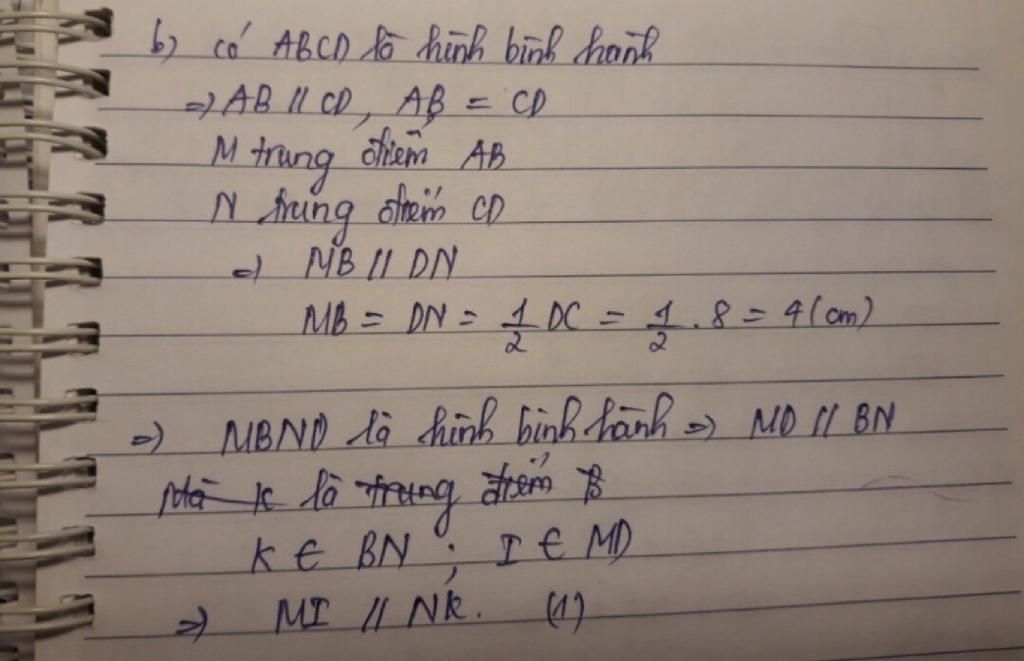 b) có ABCD là hình bình hành
=> AB // CD, AB = CD
M trung điểm AB
N trung điểm CD
=> MB // DN
MB = DN = 1/2 DC = 1/2 . 8 = 4 (cm)
=> MBND là hình bình hành => MD // BN
Mà K là trung điểm B
K ∈ BN ; I ∈ MD
=> MI // NK. (1)